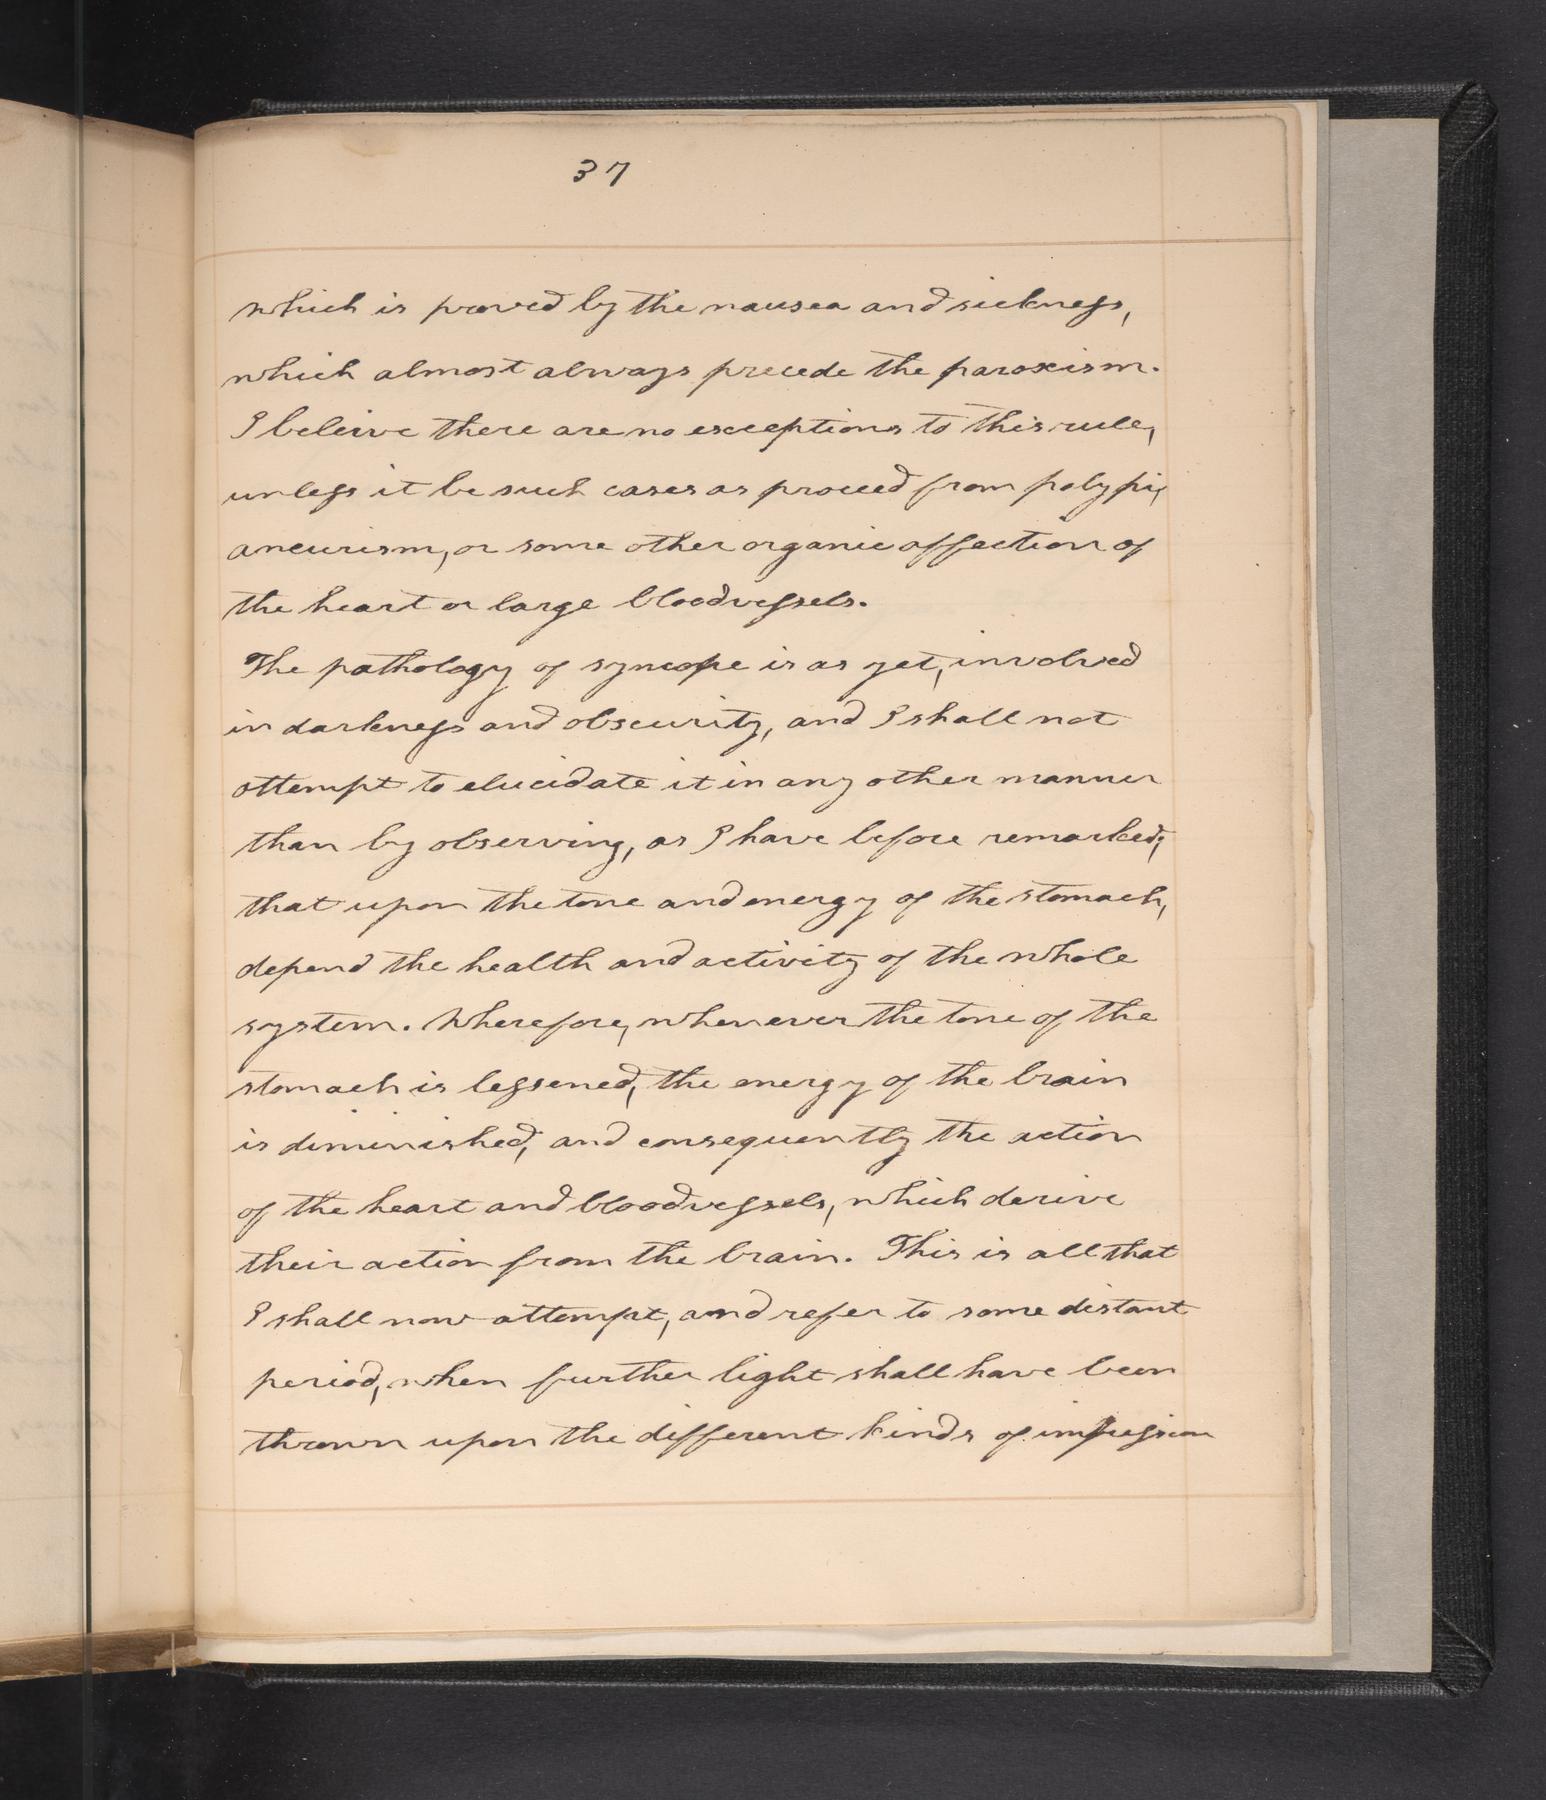 37
which is proved by the nausea and sickness,
which almost always precede the paroxism.
I beleive there are no exceptions to this rule,
unless it be such cases as proceed from polypi,
aneurism, or some other organic affection of
the heart or large bloodvessels.
The pathology of syncope is as yet, involved
in darkness and obscurity, and I shall not
attempt to elucidate it in any other manner
than by observing, as I have before remarked,
that upon the tone and energy of the stomach,
depend the health and activity of the whole
system. Wherefore, whenever the tone of the
stomach is lessened, the energy of the brain
is diminished; and consequently the action
of the heart and bloodvessels, which derive
their action from the brain. This is all that
I shall now attempt, and refer to some distant
period, when further light shall have been
thrown upon the different kinds of impression